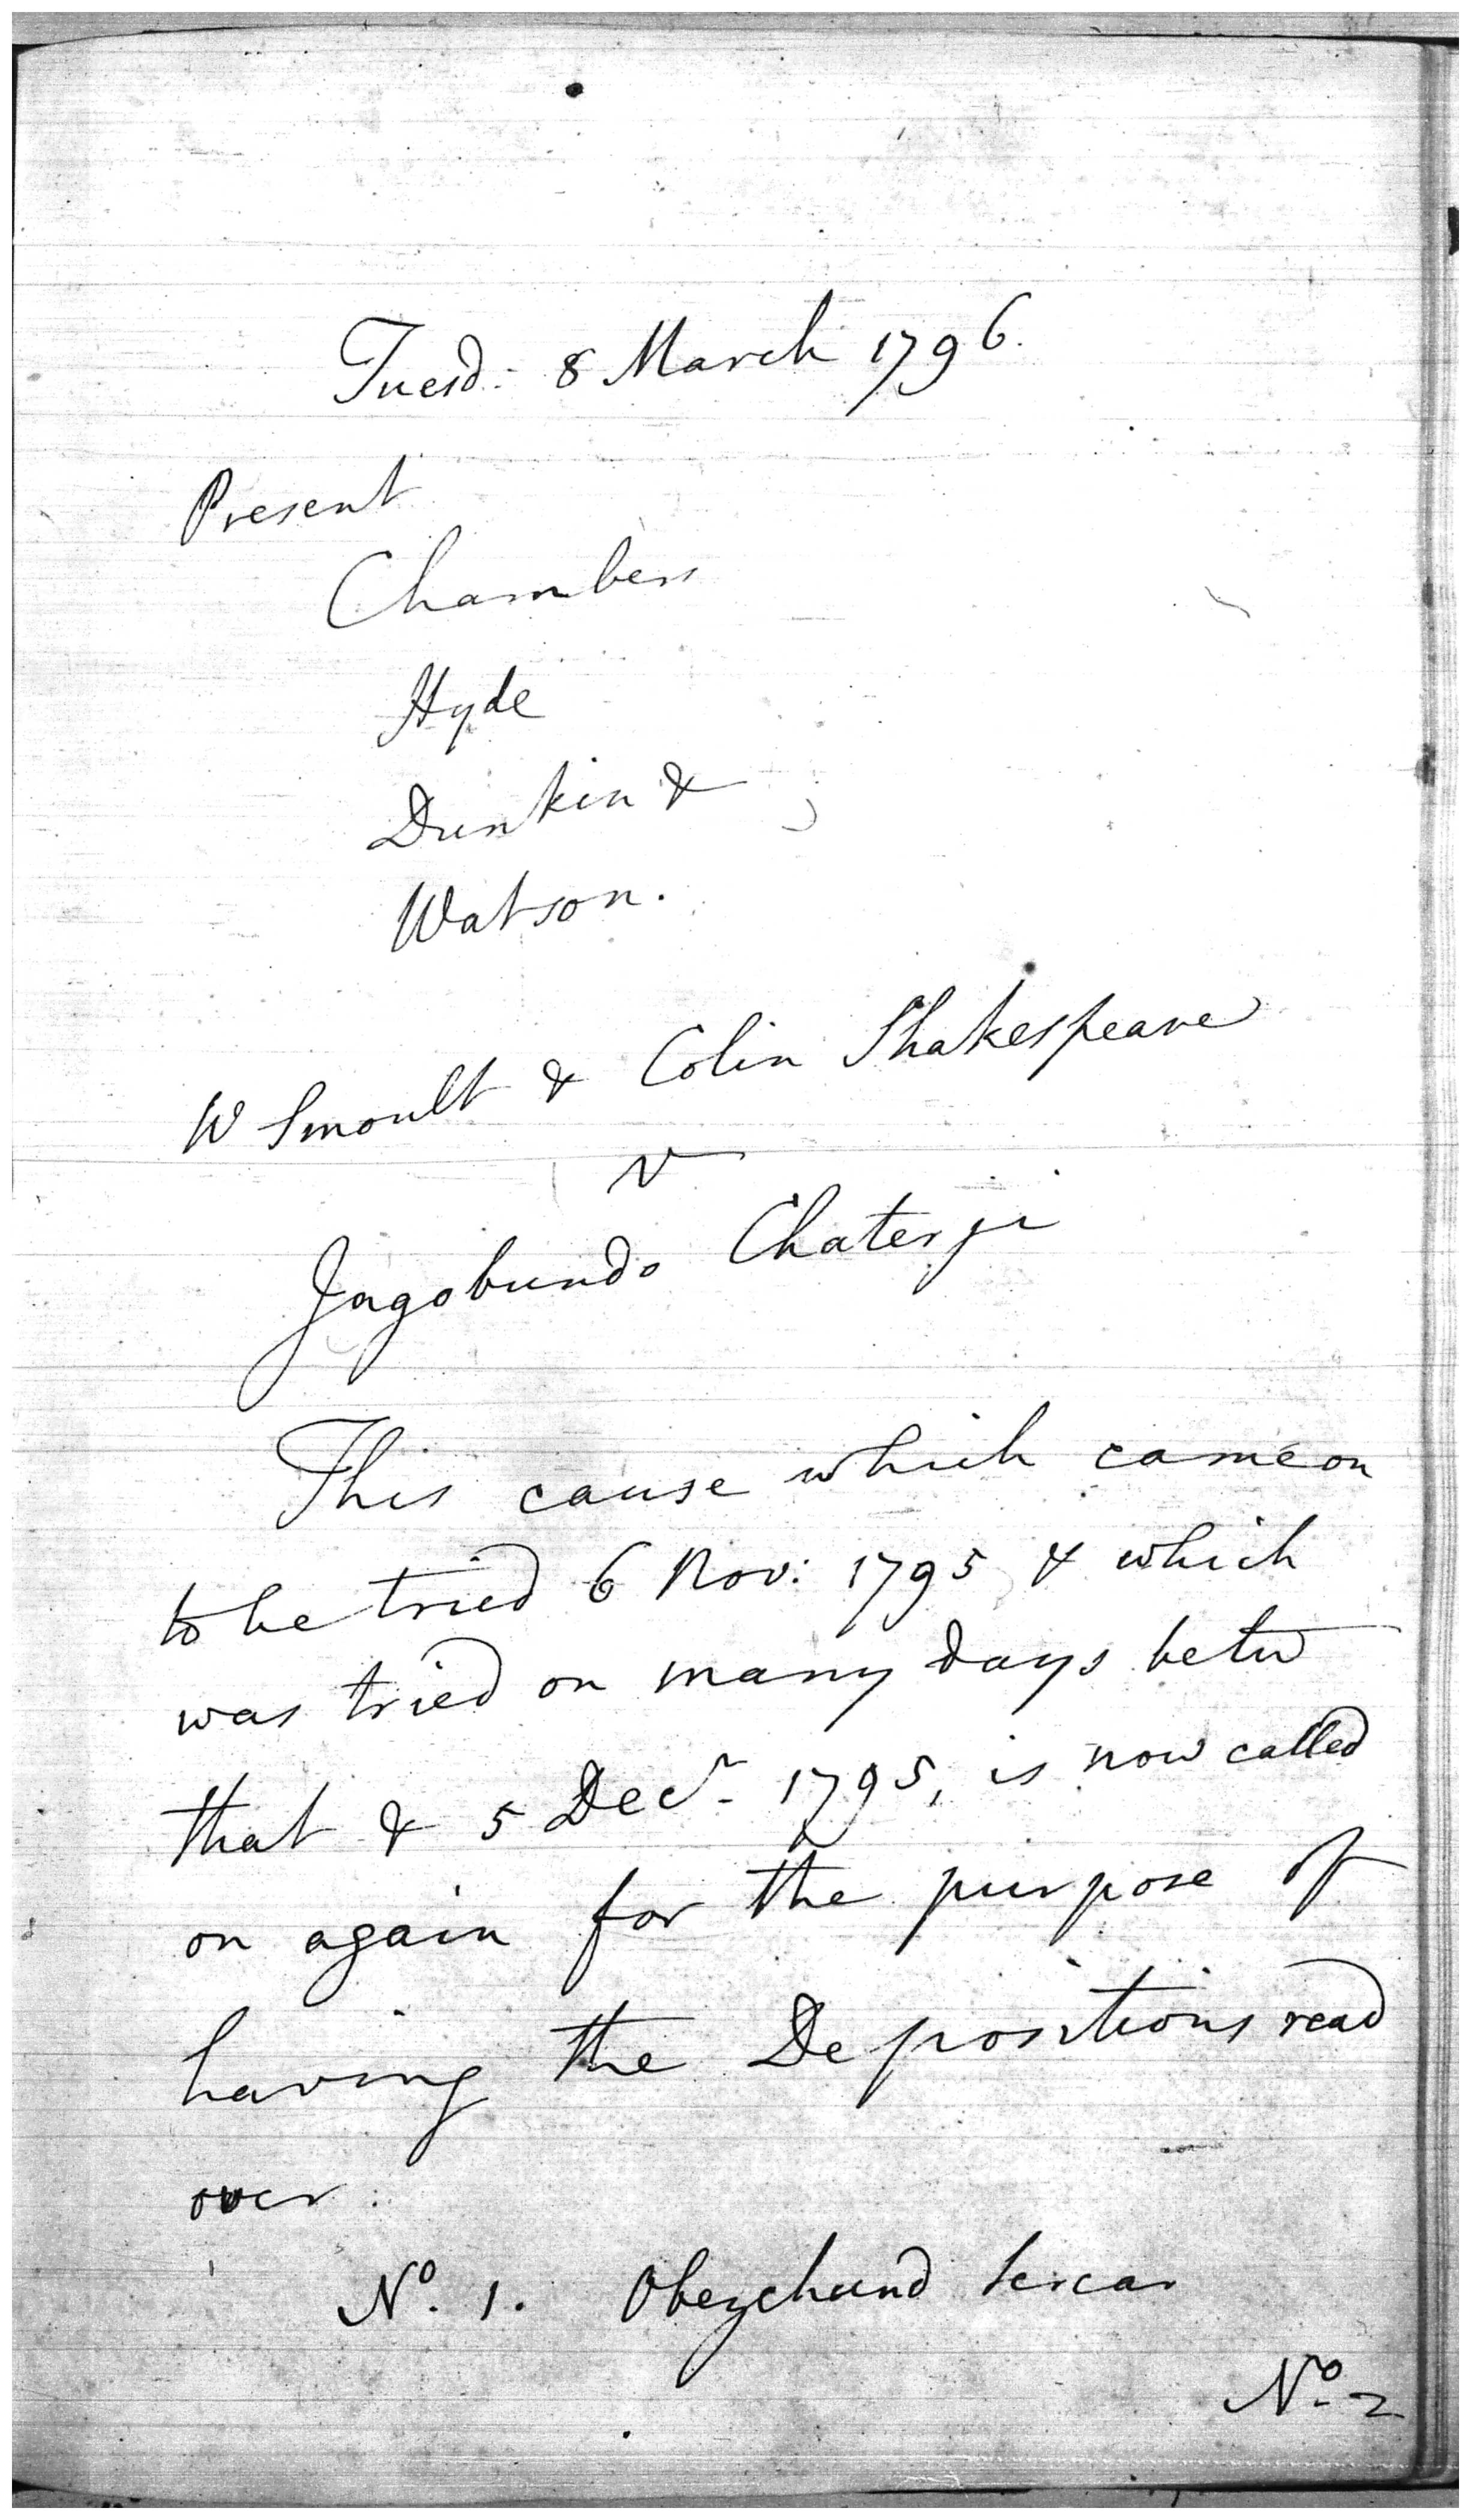 Tuesd: 8 March 1796.
Present
Chambers
Hyde
Dunkin &
Watson.
W Smoult & Colin Shakespeare
v
Jagobundo Chaterji
This cause which came on
to be tried 6 Nov: 1795 & which
was tried on many days betw
that & 5 Decr 1795, is now called
on again for the purpose of
having the Depositions read
over:
No. 1. Obeychund Sercar
No. 2